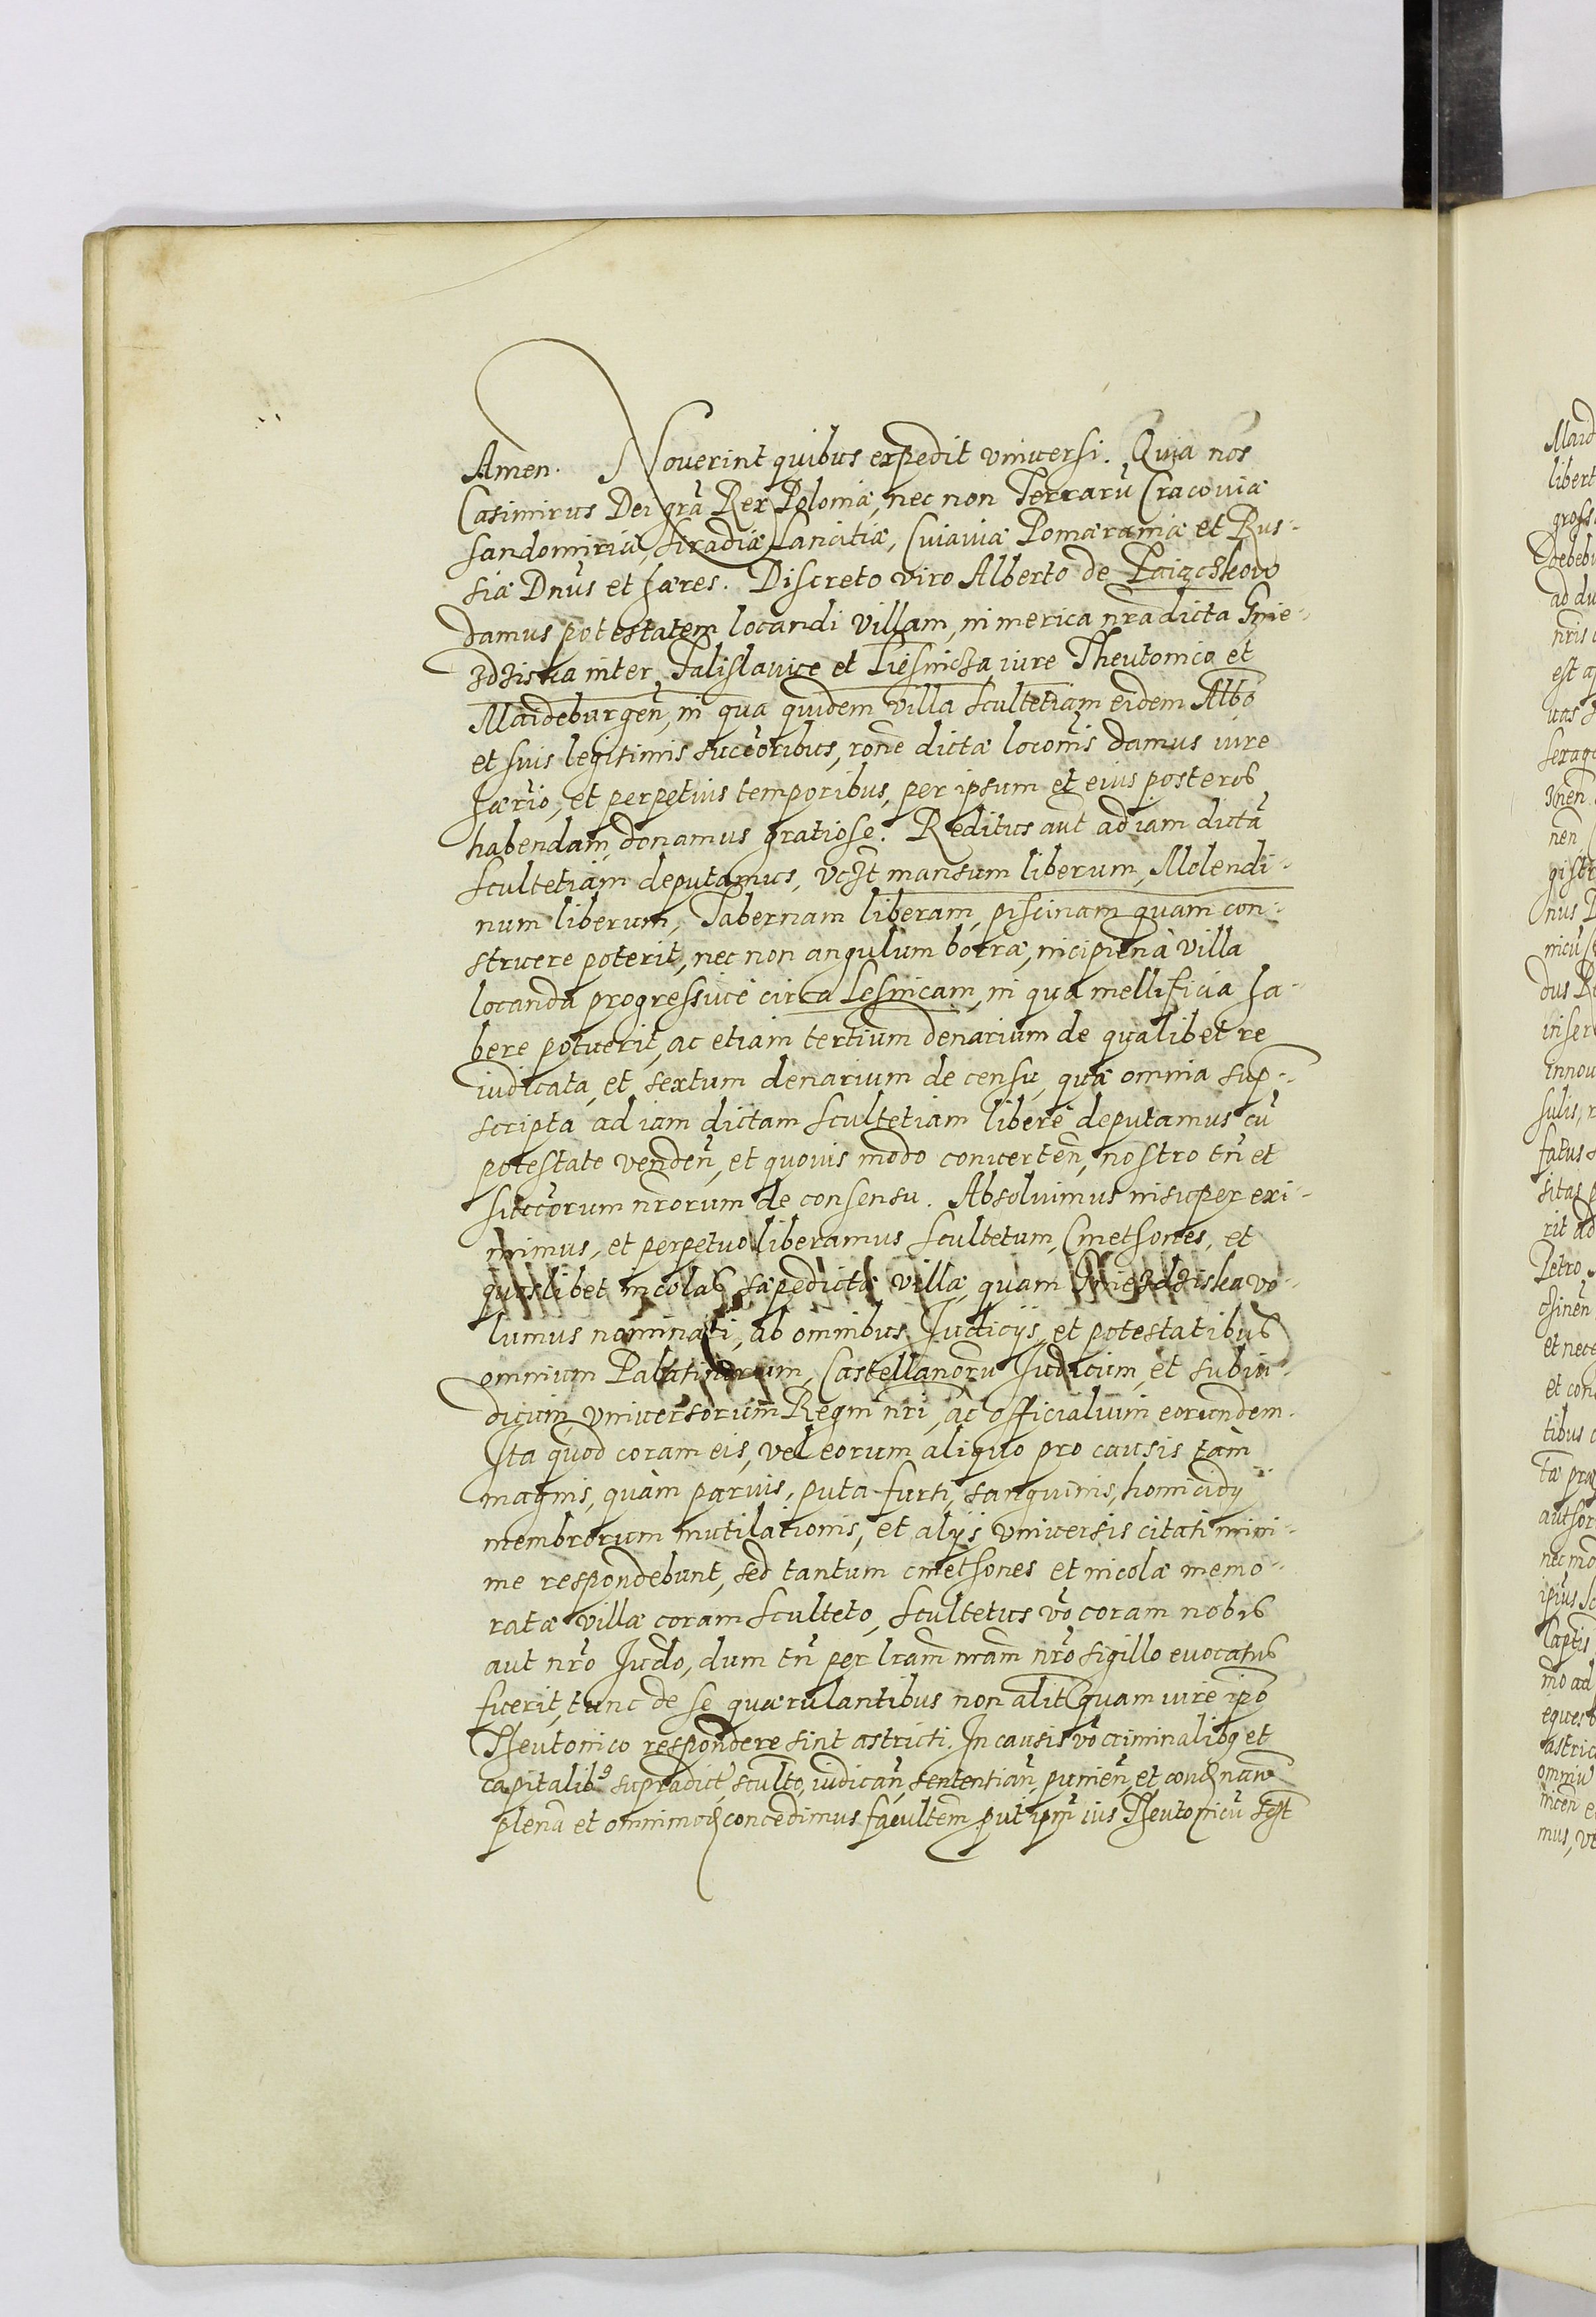 Amen. Noverint quibus expedit universi. Quia nos
Casimirus Dei grã Rex Poloniæ, nec non Terrarũ Cracoviæ
sandomiriæ, siradiæ Lancitiæ, Cuiaviæ Pomæraniæ et Rus-
siæ Dnũs et hæres. Discreto viro Alberto de
damus potestatem locandi villam, in merica nrã dicta Gnie-
zdziska inter Falislavice et iure Theutonico et
Maideburgeñ, in qua quidem villa scultetiam eidem Albõ
et suis legitimis succõribus, rõne dictæ locoñis damus iure
hærio, et perpetuis temporibus, per ipsum et eius posteros
habendam, donamus gratiose. Reditus aut̃ ad iam dictã
scultetiam deputamus, vczt mansum liberum, Molendi-
num liberum, Tabernam liberam, piscinam quam con-
struere poterit, nec non angulum borræ, incipieñ à villa
locanda progressive circa Lesnicam, in qua mellificia ha-
bere potuerit, ac etiam tertium denarium de qualibet re
iudicata, et sextum denarium de censu, quæ omnia sup-
scripta ad iam dictam scultetiam liberè deputamus cũ
potestate vendeñ, et quovis modo converteñ, nostro tñ et
succõrum nrõrum de consensu. Absolvimus insuper exi-
mimus, et perpetuo liberamus scultetum, Cmethones, et
quoslibet incolas sæpedictæ villæ, quam Gniezdziska vo-
lumus nominari, ab omnibus Judicijs, et potestatibus
omnium Palatinorum, Castellanorũ Judicum, et subiu-
dicum, universorum Regni nri, ac officialium eorundem.
Ita quod coram eis, vel eorum aliquo pro causis tàm
magnis, quàm parvis, puta furti, sanguinis, homicidij
membrorum mutilationis, et alijs universis citati mini-
me respondebunt, sed tantum cmethones et incolæ memo-
ratæ villæ coram sculteto, scultetus võ coram nobis
aut nrõ Judo, dum tñ per lrãm nrãm nrõ sigillo evocatus
fuerit, tunc de se quærulantibus non alit̃ quam iure ip̃o
Theutonico respondere sint astricti. In causis võ criminalibq et
capitalib9 supradict sculto, iudicañ, sententiañ, punieñ, et condñañ
plenã et omnimod concedimus facultem put ipm̃ ius Theutonicũ